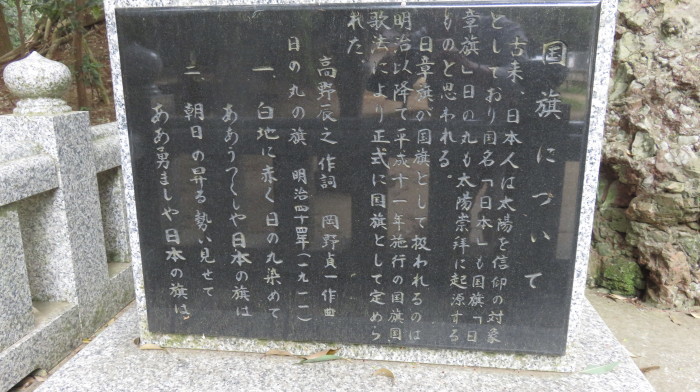 国旗について
古来、日本人は太陽を信仰の対象
としており国名「日本」も国旗「日
章旗」日の丸も太陽崇拝に起源する
ものと思われる。
日章旗が国旗として扱われるのは
明治以降で平成十一年施行の国旗国
歌法により正式に国旗として定めら
れた。
高野辰之 作詞 岡野貞一 作曲
日の丸の旗 明治四十四年(一九一一)
一、白地に赤く日の丸染めて
ああうつくしや日本の旗は
二、朝日の昇る勢い見せて
ああ勇ましや日本の旗は